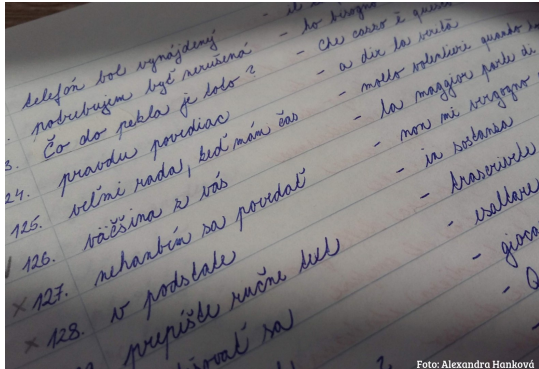 telefón bol vynájdený - il
potrebujem byť nerušená - ho bisogno
3. Čo do pekla je toto? - che cazzo è questo
24. pravdu povediac - a dir la verità
125. veľmi rada, keď mám čas - molto volentieri quando
126. väčšina z vás - la maggior parte di
x 127. nehanbím sa povedať - non mi vergogno
x 128. v podstate - in sostanza
prepíšte ručne text - trascrivete
sa - esaltare
- gioca
Foto: Alexandra Hanková